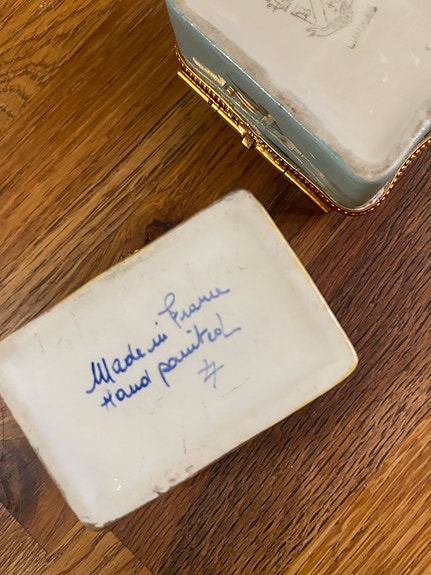 LIMOGES
Made in France
Hand painted
#